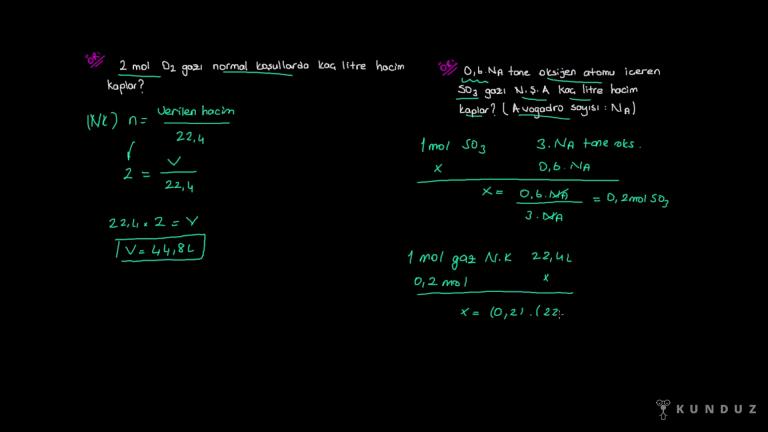 ÖR:
2 mol O2 gazı normal koşullarda kaç litre hacim
kaplar?
(NK) n = verilen hacim
22,4
2 = V
22,4
22,4 × 2 = V
V = 44,8L
ÖR:
0,6.NA tane oksijen atomu içeren
SO3 gazı N.Ş.A kaç litre hacim
kaplar? (Avogadro sayısı: NA)
1 mol SO3 3.NA tane oks.
x 0,6.NA
x = 0,6.NA = 0,2 mol SO3
3.NA
1 mol gaz N.K 22,4L
0,2 mol x
x = (0,2).(22
KUNDUZ